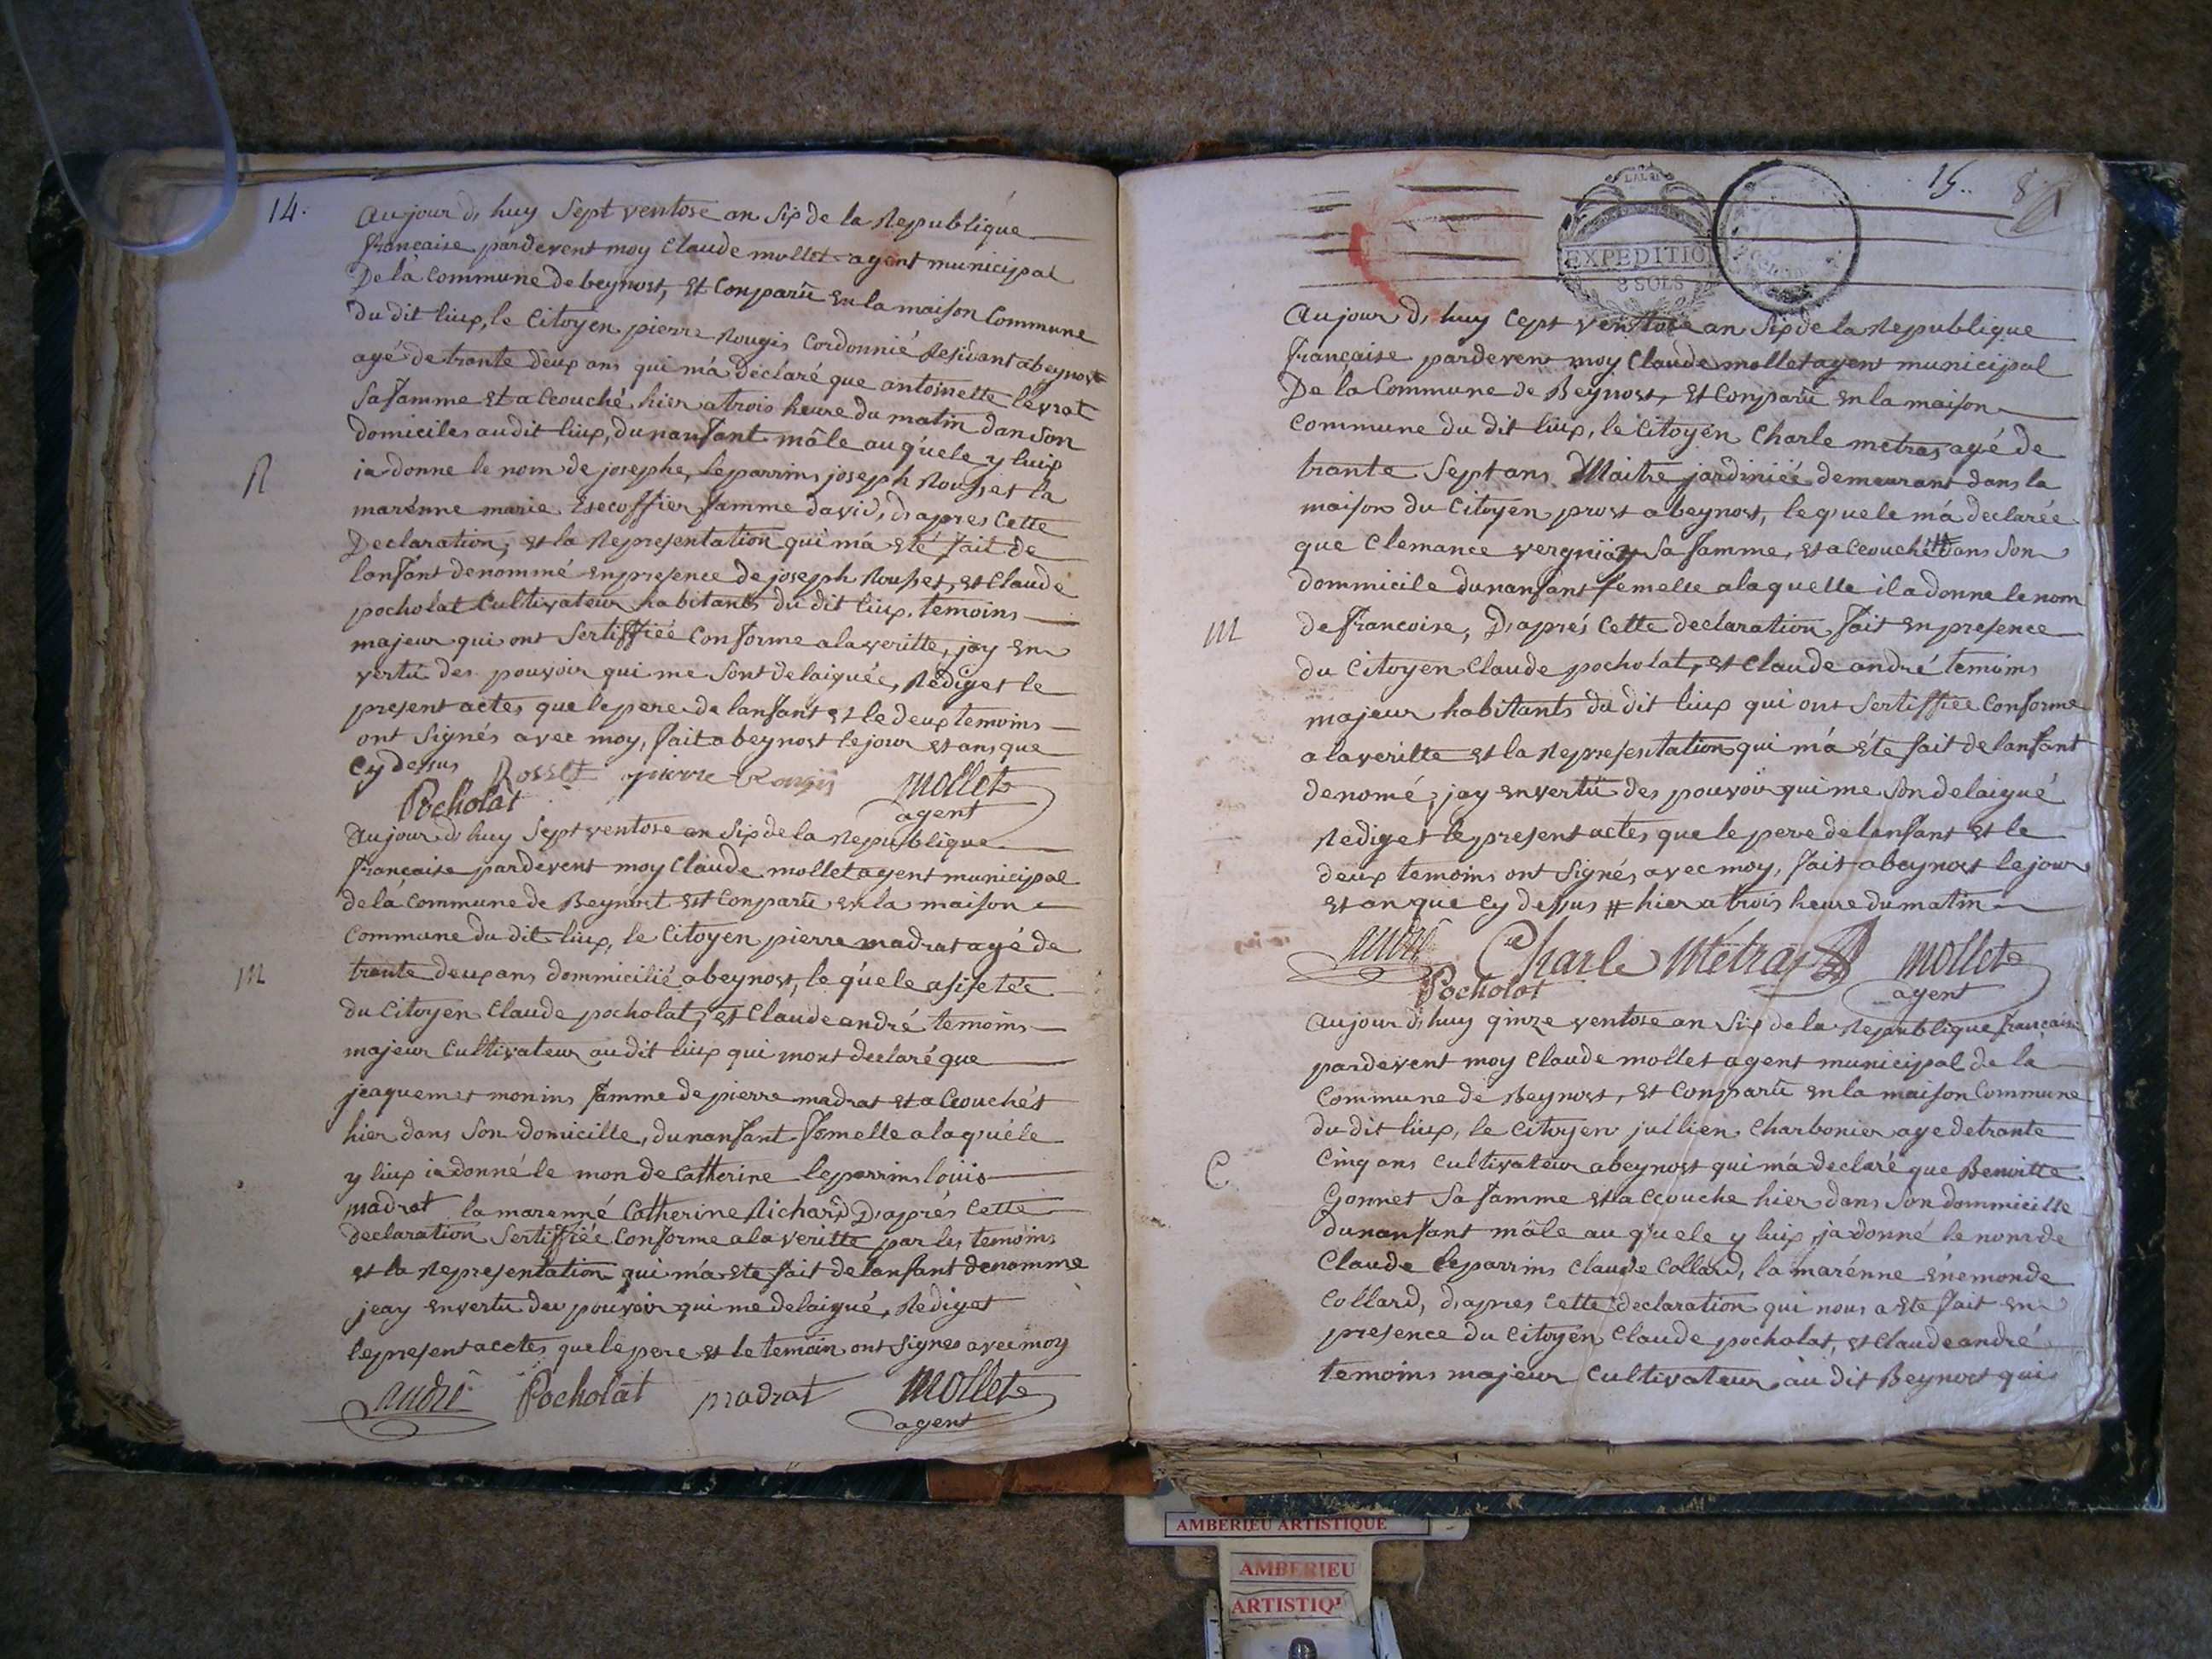 14.
aujour d, huy Sept ventose an Six de la Republique
française pardevent moy Claude mollet agent municipal
De la Commune de beynost, Et Comparû En la maison Commune
du dit liux, le Citoyen pierre Rougis Cordonnié Residant abeynost
agé de trante deux ans qui ma déclaré que antoinette levrat
Sa famme Et accouché hier atrois heure du matin dan Son
domiciles audit liux, dunanfant mâle auquele y luix
R
ia donne le nom de josephe, leparrins joseph Rousset la
marénne marie Esecoffier famme david, d, apres Cette
Declaration, et la Representation qui ma eté fait de
lanfant denommé enpresence de joseph Rousset, et Claude
pocholat Cultivateur habitants du dit liux. temoins
majeur qui ont Sertiffiée Conforme alaveritte, jay en
vertû des pouvoir qui me Sont delaiguée, Rediget le
present actes, que le pere de lanfant et le deux temoins
ont Signés avec moy, fait abeynost le jour et ans que
Cy dessus Rosset pierre Rougis mollet
Pocholat agent
Aujour d, huy Sept ventose an Six de la Republique
française pardevent moy Claude mollet agent municipal
de la Commune de Beynost est Comparû en la maison
Commune du dit liux, le Citoyen pierre madrat agé de
M
trante deux ans dommicilié abeynost, le quele asistée
du Citoyen Claude pocholat, et Claude andré temoins
majeur Cultivateur audit liux qui mont declaré que
jeaquemet monins famme de pierre madrat et accouchét
hier dans Son domicille, dunanfant femelle alaquéle
y liux ia donné le mon de Catherine leparrins louis
madrat la marenné Catherine Richard D, aprés Cette
declaration Sertiffiée Conforme ala veritte par les temoins
et la Representation qui ma ete fait de lanfant denomme
jeay envertu des pouvoir qui me delaigué, Rediget
lepresent acctes que le pere et le temoin ont Signes avec moy
andré Pocholat madrat mollet
agent
15..
8
EXPEDITION
8 SOLS
Aujour d, huy Cept ventose an Six de la Republique
française pardevent moy Claude mollet agent municipal
De la Commune de Beynost, Et Comparû en la maison
Commune du dit liux, le Citoyen Charle metras agé de
trante Sept ans Maitre jardiniée demeurant dans la
maison du Citoyen prost abeynost, lequele ma declarée
que Clemance vergniay Sa famme, et accouché # dans Son
dommicile dunanfant femelle alaquelle il a donne le nom
M
de françoise, D, aprés Cette declaration fait en presence
du Citoyen Claude pocholat, et Claude andré temoins
majeur habitants du dit liux qui ont Sertiffiee Conforme
a laveritte et la Representation qui ma éte fait de lanfant
denomé, jay envertû des pouvoir qui me Son delaigué
Rediget lepresent actes que le pere de lanfant et le
deux temoins ont Signés avec moy, fait abeynost le jour
et an que Cy dessus # hier a trois heure du matin
andré Charle Métras mollet
Pocholat agent
Aujour d, huy qinze ventose an Six de la Republique française
pardevent moy Claude mollet agent municipal de la
Commune de Beynost, et Comparû en la maison Commune
du dit liux, le Citoyen jullien Charbonier age de trante
C
Cinq ans Cultivateur abeynost qui ma declaré que Benoitte
Gonnet Sa famme et accouche hier dans Son dommicille
dunanfant mâle au quele y luix ja donné le nom de
Claude leparrins Claude Collard, la marénne énemonde
Collard, d, apres Cette declaration qui nous a ete fait en
presence du Citoyen Claude pocholat, et Claude andré
temoins majeur Cultivateur au dit Beynost qui
AMBERIEU ARTISTIQUE
AMBERIEU
ARTISTIQ